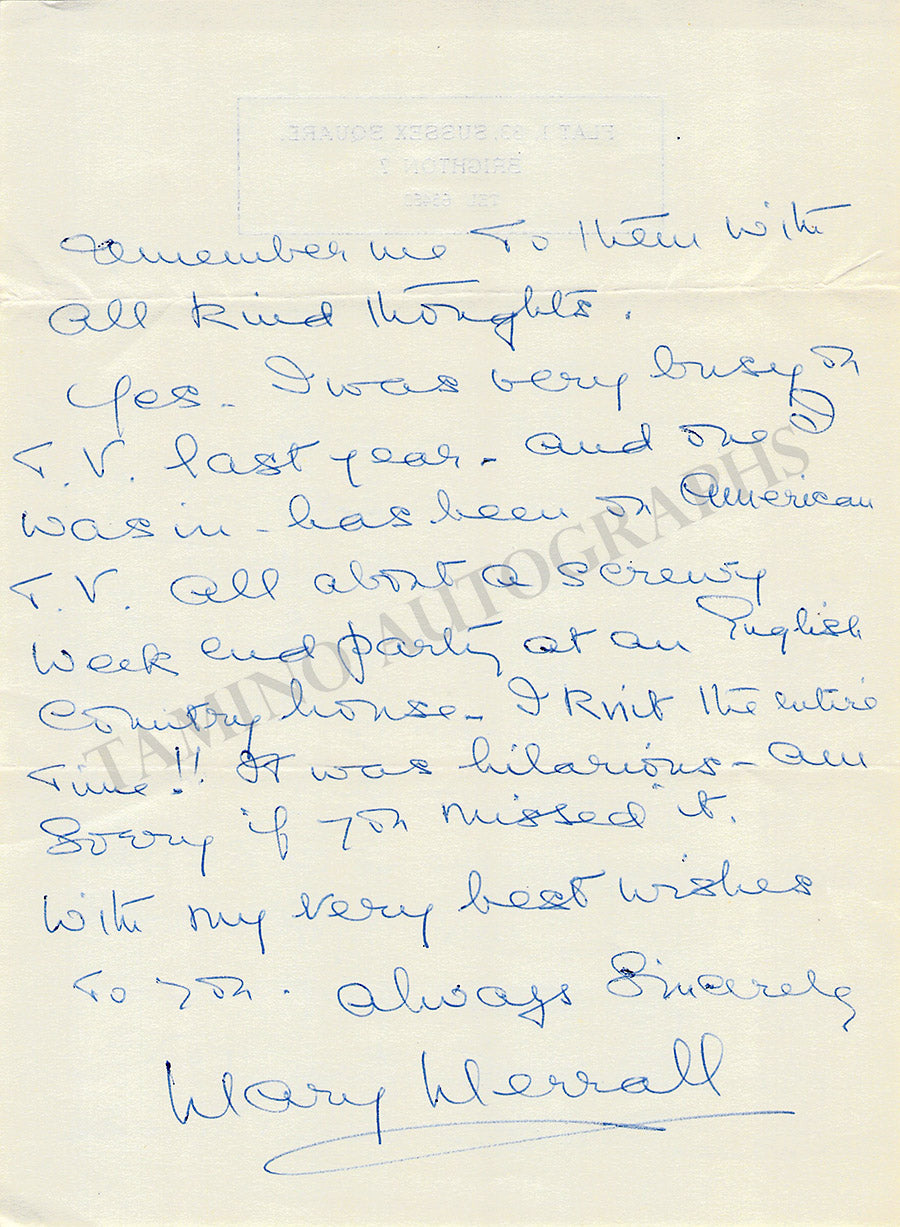 FLAT 1, 63, SUSSEX SQUARE.
BRIGHTON 7
TEL
remember me to them with
all kind thoughts.
Yes - I was very busy on
T.V. last year - and one I
was in - has been on American
T.V. all about a screwy
week end party at an English
Country house - I knit the entire
time!! It was hilarious - am
Sorry if you "missed" it.
With my very best wishes
to you. always Sincerely
Mary Merrall
TAMINO AUTOGRAPHS